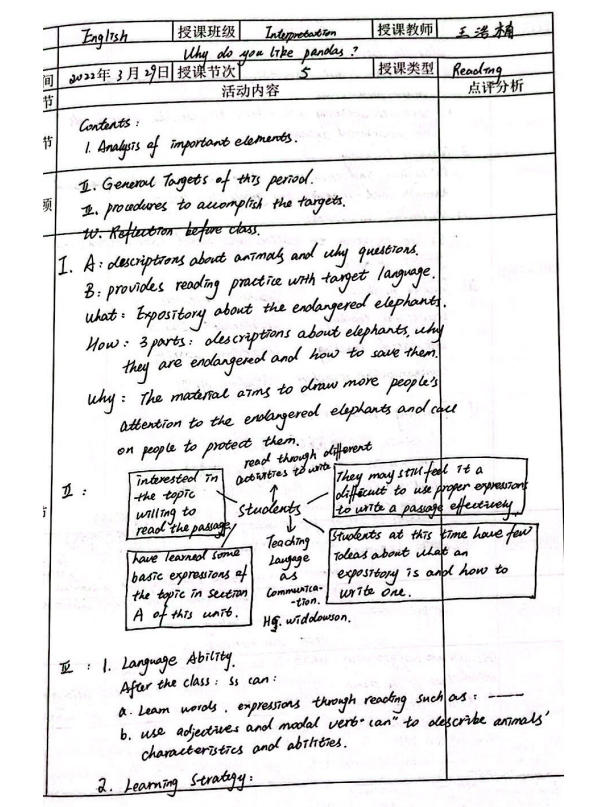 English 授课班级 Interpretation 授课教师 王浩楠
Why do you like pandas ?
间 2022年3月29日 授课节次 5 授课类型 Reading
节 活动内容 点评分析
Contents :
节 1. Analysis of important elements.
II. General Targets of this period.
III. procedures to accomplish the targets.
IV. Reflection before class.
I. A : descriptions about animals and why questions.
B : provides reading practice with target language.
what : Expository about the endangered elephants.
How : 3 parts : descriptions about elephants, why
they are endangered and how to save them.
why : The material aims to draw more people's
attention to the endangered elephants and call
on people to protect them.
II :
read through different
activities to write
interested in
the topic
willing to
read the passage
Students
They may still feel it a
difficult to use proper expressions
to write a passage effectively
have learned some
basic expressions of
the topic in section
A of this unit.
Teaching
Laugage
as
Communica-
-tion.
HG. widdowson.
Students at this time have few
ideas about what an
expository is and how to
write one.
III : 1. Language Ability.
After the class : ss can :
a. Learn words, expressions through reading such as : ——
b. use adjectives and modal verb "can" to describe animals'
characteristics and abilities.
2. Learning strategy :